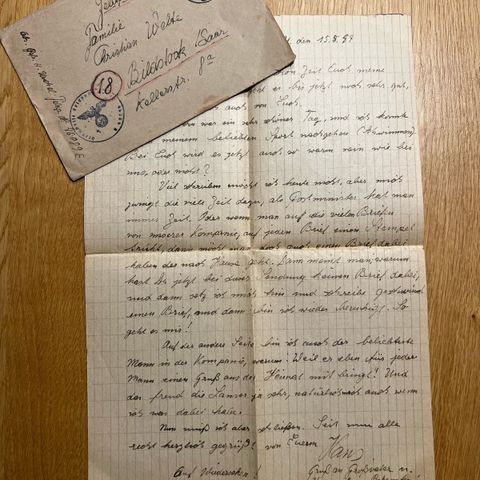 Familie
Christian Welte
Bildstock/Saar
Kellerstr. 9a
18
den 15.5.44
Zeit Euch meine
es bis jetzt noch sehr gut,
auch von Euch.
war ein sehr schöner Tag, und ich konnte
meinem beliebten Sport nachgehen (Schwimmen)
Bei Euch wird es jetzt auch so warm sein wie bei
uns, oder nicht?
Viel schreiben möcht ich heute nicht, aber mich
zwingt die viele Zeit dazu, als Postminister hat man
immer Zeit. Oder wenn man auf die vielen Briefen
von unserer Kompanie, auf jeden Brief einen Stempel
drückt, dann möcht man doch auch einen Brief dabei
haben der nach Hause geht. Dann meint man, warum
hast Du jetzt bei dieser Sendung keinen Brief dabei,
und dann setz ich mich hin und schreibe geschwind
einen Brief, und dann bin ich wieder beruhigt. So
geht es mir!
Auf der andere Seite bin ich auch der beliebteste
Mann in der Kompanie, warum? Weil er eben für jeder
Mann einen Gruß aus der Heimat mit bringt! Und
das freud die Landser ja sehr, natürlich auch wenn
ich was dabei habe.
Nun muß ich aber schließen. Seit nun alle
recht herzlich gegrüßt von Euerm
Hans
Auf Wiedersehen!
Gruß an Großvater u.